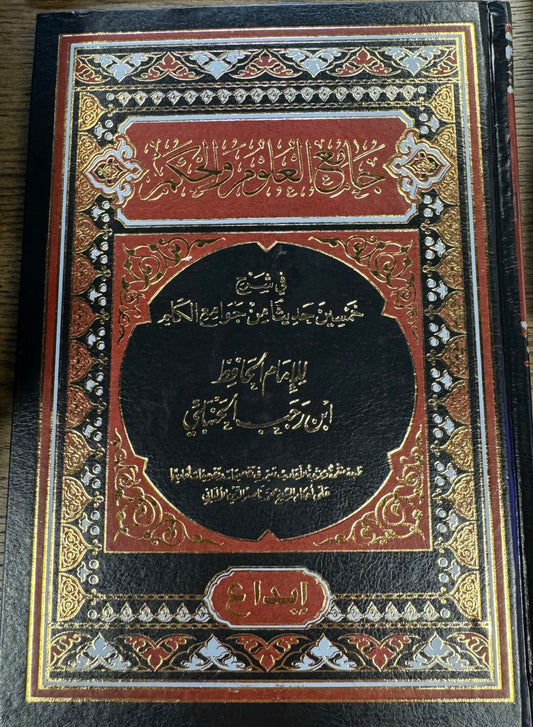 جامع العلوم والحكم
في شرح
خمسين حديثا من جوامع الكلم
للإمام الحافظ
ابن رجب الحنبلي
طبعة
الألباني
إبداع